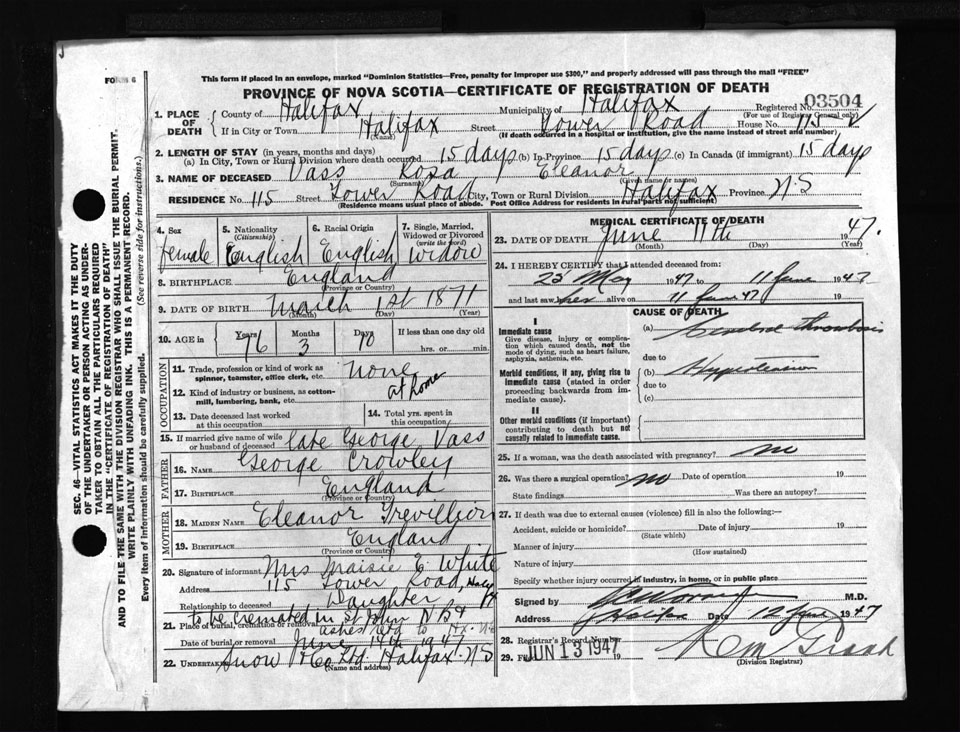 FORM 6
This form if placed in an envelope, marked "Dominion Statistics—Free, penalty for improper use $300," and properly addressed will pass through the mail "FREE"
PROVINCE OF NOVA SCOTIA—CERTIFICATE OF REGISTRATION OF DEATH
Registered No. 03504
(For use of Registrar General only)
1. PLACE OF DEATH County of Halifax Municipality of Halifax
If in City or Town Halifax (Name) Street Tower Road House No. 115
(If death occurred in a hospital or institution, give the name instead of street and number)
2. LENGTH OF STAY (in years, months and days)
(a) In City, Town or Rural Division where death occurred 15 days (b) In Province 15 days (c) In Canada (if immigrant) 15 days
3. NAME OF DECEASED Vass Rosa Eleanor
(Surname) (Given name or names)
RESIDENCE No. 115 Street Tower Road City, Town or Rural Division Halifax Province N.S
(Residence means usual place of abode. Post Office Address for residents in rural parts not sufficient)
4. Sex female
5. Nationality (Citizenship) English
6. Racial Origin English
7. Single, Married, Widowed or Divorced (write the word) Widow
8. BIRTHPLACE England
(Province or Country)
9. DATE OF BIRTH March 1st 1871
(Month) (Day) (Year)
10. AGE in Years 76 Months 3 Days 10 If less than one day old
hrs. or min.
OCCUPATION
11. Trade, profession or kind of work as spinner, teamster, office clerk, etc. none
12. Kind of industry or business, as cotton-mill, lumbering, bank, etc. at home
13. Date deceased last worked at this occupation
14. Total yrs. spent in this occupation
15. If married give name of wife or husband of deceased late George Vass
FATHER
16. NAME George Crowley
17. BIRTHPLACE England
(Province or Country)
MOTHER
18. MAIDEN NAME Eleanor Trevillion
19. BIRTHPLACE England
(Province or Country)
20. Signature of informant Mrs Maisie E White
Address 115 Tower Road, Halifax
Relationship to deceased Daughter
21. Place of burial, cremation or removal to be cremated in St John NB &
ashes retd to Hx. N.S
Date of burial or removal June 14th 1947
22. UNDERTAKER Snow & Co Ltd. Halifax N.S
(Name and address)
MEDICAL CERTIFICATE OF DEATH
23. DATE OF DEATH June 11th 1947.
(Month) (Day) (Year)
24. I HEREBY CERTIFY that I attended deceased from:
23 May 1947 to 11 June 1947
and last saw her alive on 11 June 47 19
CAUSE OF DEATH
I
Immediate cause
Give disease, injury or complication which caused death, not the mode of dying, such as heart failure, asphyxia, asthenia, etc.
(a) Cerebral thrombosis
due to
Morbid conditions, if any, giving rise to immediate cause (stated in order proceeding backwards from immediate cause).
(b) Hypertension
due to
(c)
II
Other morbid conditions (if important) contributing to death but not causally related to immediate cause.
25. If a woman, was the death associated with pregnancy? no
26. Was there a surgical operation? no Date of operation 19
State findings Was there an autopsy?
27. If death was due to external causes (violence) fill in also the following:—
Accident, suicide or homicide? Date of injury 19
(State which)
Manner of injury
(How sustained)
Nature of injury
Specify whether injury occurred in industry, in home, or in public place
Signed by M.D.
Address Halifax Date 12 June 1947
28. Registrar's Record Number
29. Filed JUN 13 1947 19
(Division Registrar)
SEC. 46—VITAL STATISTICS ACT MAKES IT THE DUTY
OF THE UNDERTAKER OR PERSON ACTING AS UNDERTAKER
TO OBTAIN ALL THE PARTICULARS REQUIRED
IN THE "CERTIFICATE OF REGISTRATION OF DEATH"
AND TO FILE THE SAME WITH THE DIVISION REGISTRAR WHO SHALL ISSUE THE BURIAL PERMIT.
WRITE PLAINLY WITH UNFADING INK. THIS IS A PERMANENT RECORD.
Every item of information should be carefully supplied. (See reverse side for instructions.)